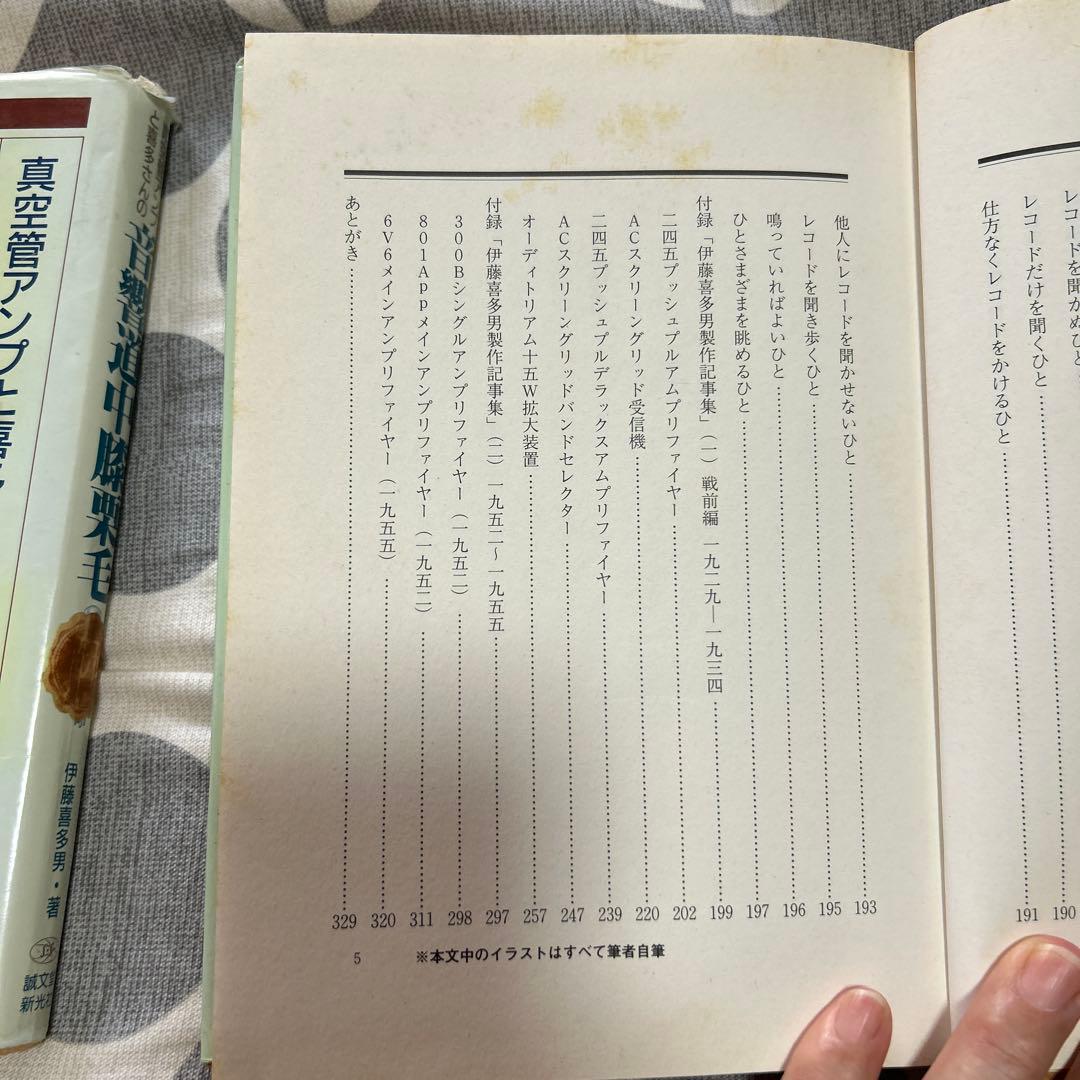 レコードを聞かぬひと…190
レコードだけを聞くひと…191
仕方なくレコードをかけるひと…
他人にレコードを聞かせないひと…193
レコードを聞き歩くひと…195
鳴っていればよいひと…196
ひとさまざまを眺めるひと…197
付録「伊藤喜多男製作記事集」(一)戦前編 一九二九―一九三四…199
二四五プッシュプルアムプリファイヤー…202
ACスクリーングリッド受信機…220
二四五プッシュプルデラックスアムプリファイヤー…239
ACスクリーングリッドバンドセレクター…247
オーディトリアム十五W拡大装置…257
付録「伊藤喜多男製作記事集」(二)一九五二〜一九五五…297
300Bシングルアンプリファイヤー(一九五二)…298
801Appメインアンプリファイヤー(一九五二)…311
6V6メインアンプリファイヤー(一九五五)…320
あとがき…329
5
※本文中のイラストはすべて筆者自筆
と喜多さんの
音響道中膝栗毛
伊藤喜多男・著
誠文堂
新光社
真空管アンプと喜多